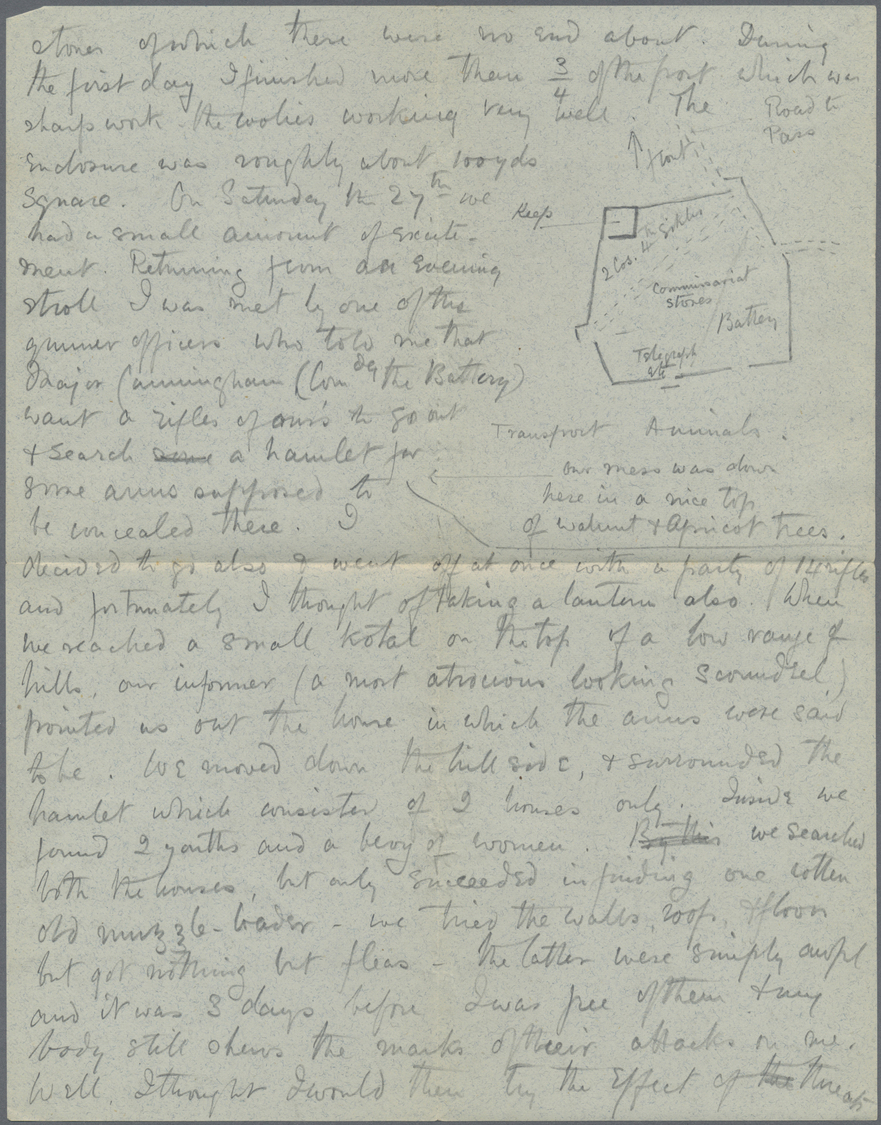 stones of which there were no end about. During
the first day I finished more than 3/4 of the post which was
sharp work - the coolies working very well. The
Enclosure was roughly about 100 yds
square. On Saturday the 27th we
had a small amount of excite-
ment. Returning from an evening
stroll I was met by one of the
gunner officers who told me that
Major Cunningham (Comdg the Battery)
want a rifles of ours to go out
& search some a hamlet for
some arms supposed to
be concealed there. I
Road to
Pass
front
Keep
2 Cos. 4th Sikhs
Commissariat
stores
Battery
Telegraph
Transport Animals.
our mess was down
here in a nice top
of walnut & Apricot trees.
decided to go also & went off at once with a party of 14 rifles
and fortunately I thought of taking a lantern also. When
we reached a small kotal on the top of a low range of
hills, our informer (a most atrocious looking scoundrel)
pointed us out the house in which the arms were said
to be. We moved down the hill side, & surrounded the
hamlet which consister of 2 houses only. Inside we
found 2 youths and a bevy of women. By this we searched
both the houses, but only succeeded in finding one rotten
old muzzle-loader - we tried the walls, roofs, & floors
but got nothing but fleas - the latter were simply awful
and it was 3 days before I was free of them & my
body still shews the marks of their attacks on me.
Well, I thought I would then try the Effect of the threats